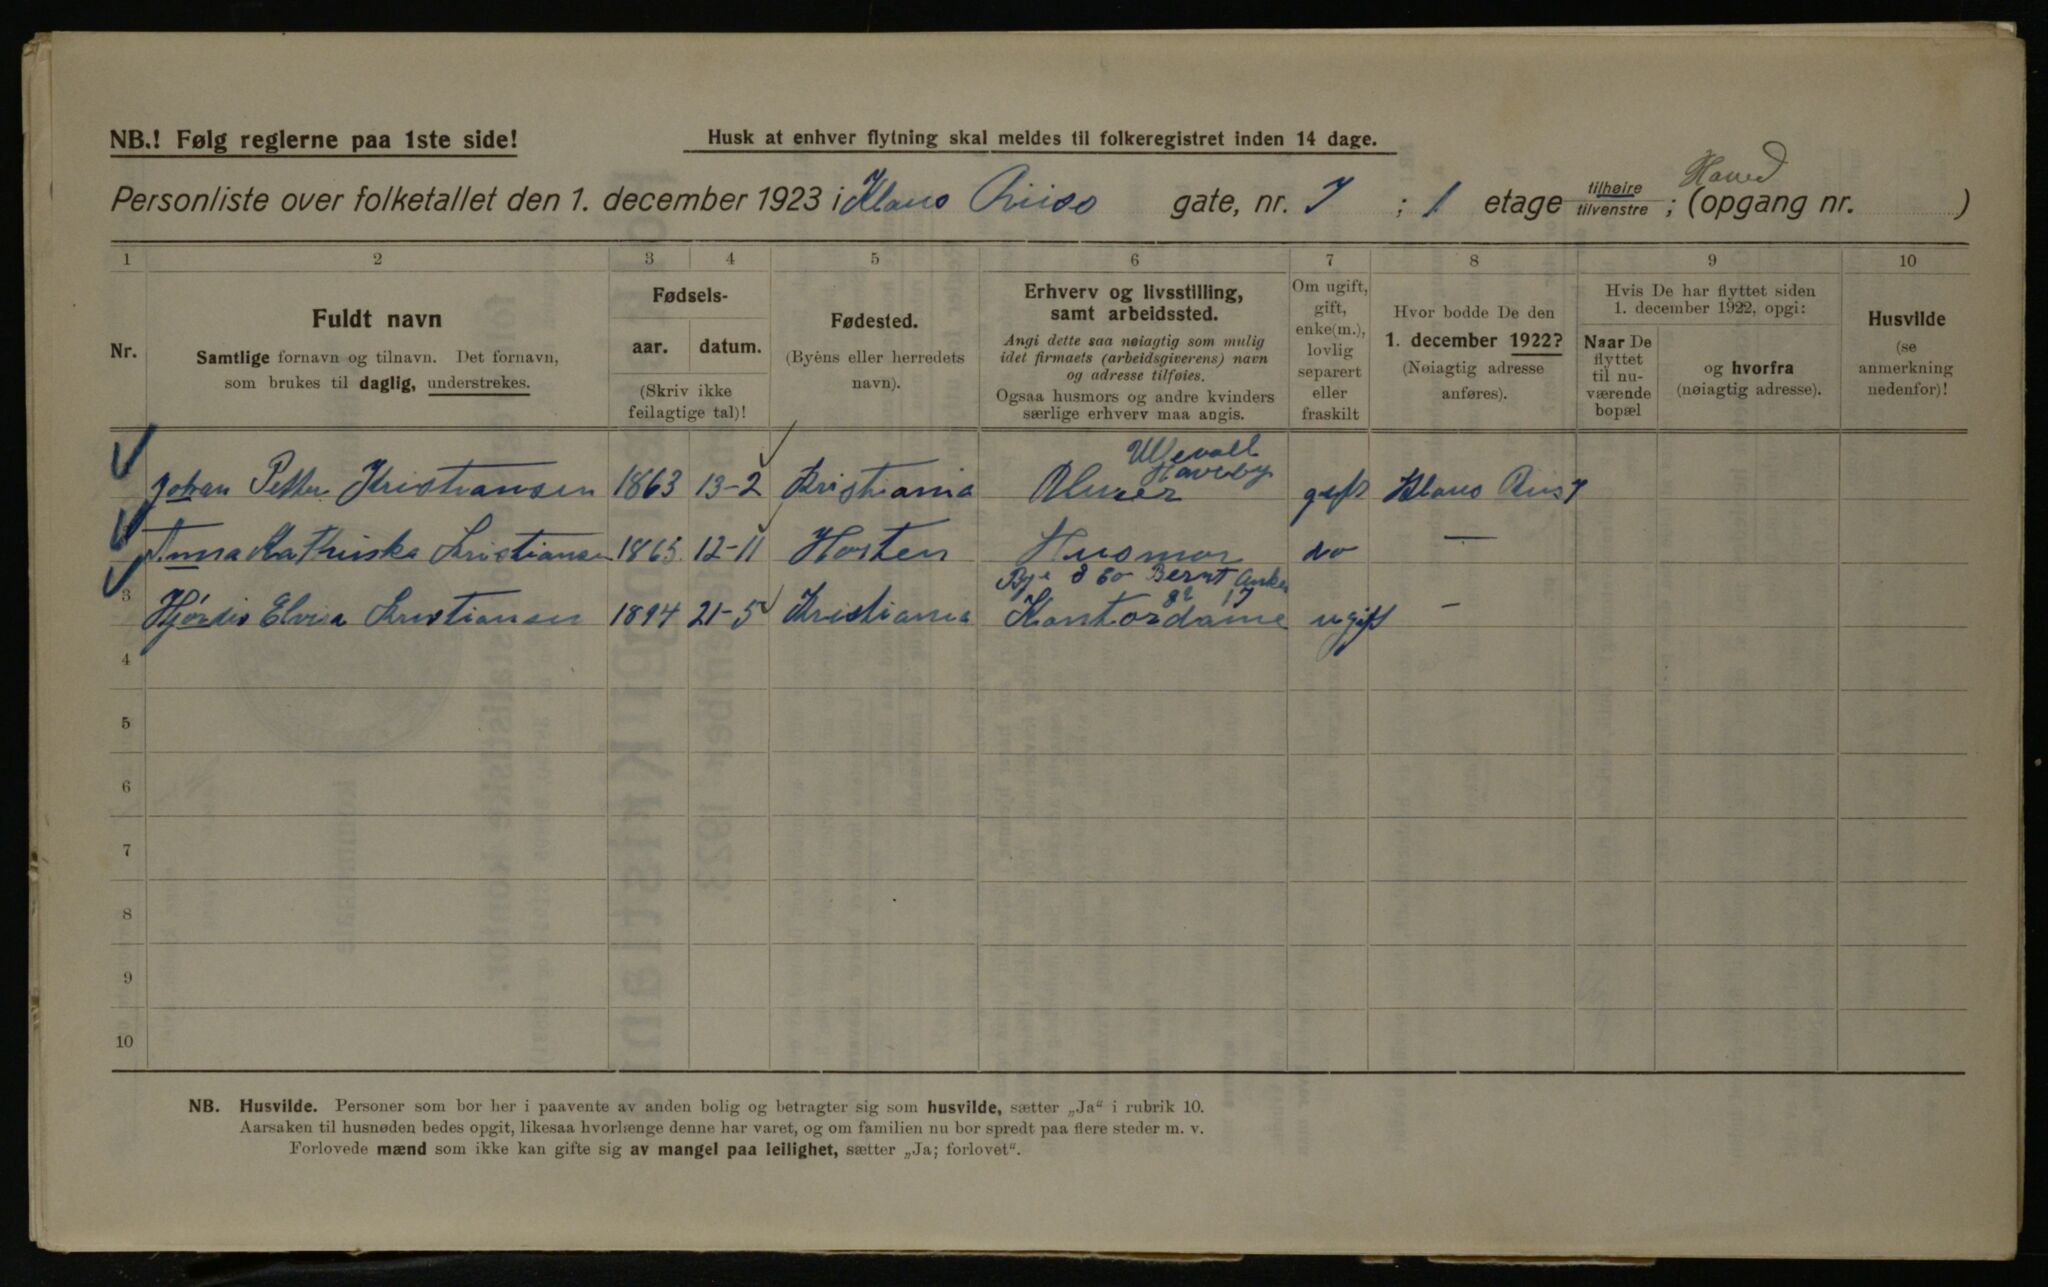 NB.! Følg reglerne paa 1ste side!
Husk at enhver flytning skal meldes til folkeregistret inden 14 dage.
Personliste over folketallet den 1. december 1923 i Klaus Riiso gate, nr. 7 ; 1 etage tilhøire tilvenstre ; (opgang nr. )
1 2 3 4 5 6 7 8 9 10
Nr.
Fuldt navn
Samtlige fornavn og tilnavn. Det fornavn,
som brukes til daglig, understrekes.
Fødsels-
aar. datum.
(Skriv ikke
feilagtige tal)!
Fødested.
(Byens eller herredets
navn).
Erhverv og livsstilling,
samt arbeidssted.
Angi dette saa nøiagtig som mulig
idet firmaets (arbeidsgiverens) navn
og adresse tilføies.
Ogsaa husmors og andre kvinders
særlige erhverv maa angis.
Om ugift,
gift,
enke(m.),
lovlig
separert
eller
fraskilt
Hvor bodde De den
1. december 1922?
(Nøiagtig adresse
anføres).
Hvis De har flyttet siden
1. december 1922, opgi:
Naar De
flyttet
til nu-
værende
bopæl
og hvorfra
(nøiagtig adresse).
Husvilde
(se
anmerkning
nedenfor)!
Ullevall
Haveby
Johan Petter Kristiansen 1863 13-2 Kristiania Murer gift Klaus Riis 7
Anna Kathinka Kristiansen 1865 12-11 Horten Husmor do —
Bernt Anker
17
3 Hjördis Elvira Kristiansen 1894 21-5 Kristiania Kontordame ugift —
4
5
6
7
8
9
10
NB. Husvilde. Personer som bor her i paavente av anden bolig og betragter sig som husvilde, sætter „Ja“ i rubrik 10.
Aarsaken til husnøden bedes opgit, likesaa hvorlænge denne har varet, og om familien nu bor spredt paa flere steder m. v.
Forlovede mænd som ikke kan gifte sig av mangel paa leilighet, sætter „Ja; forlovet“.